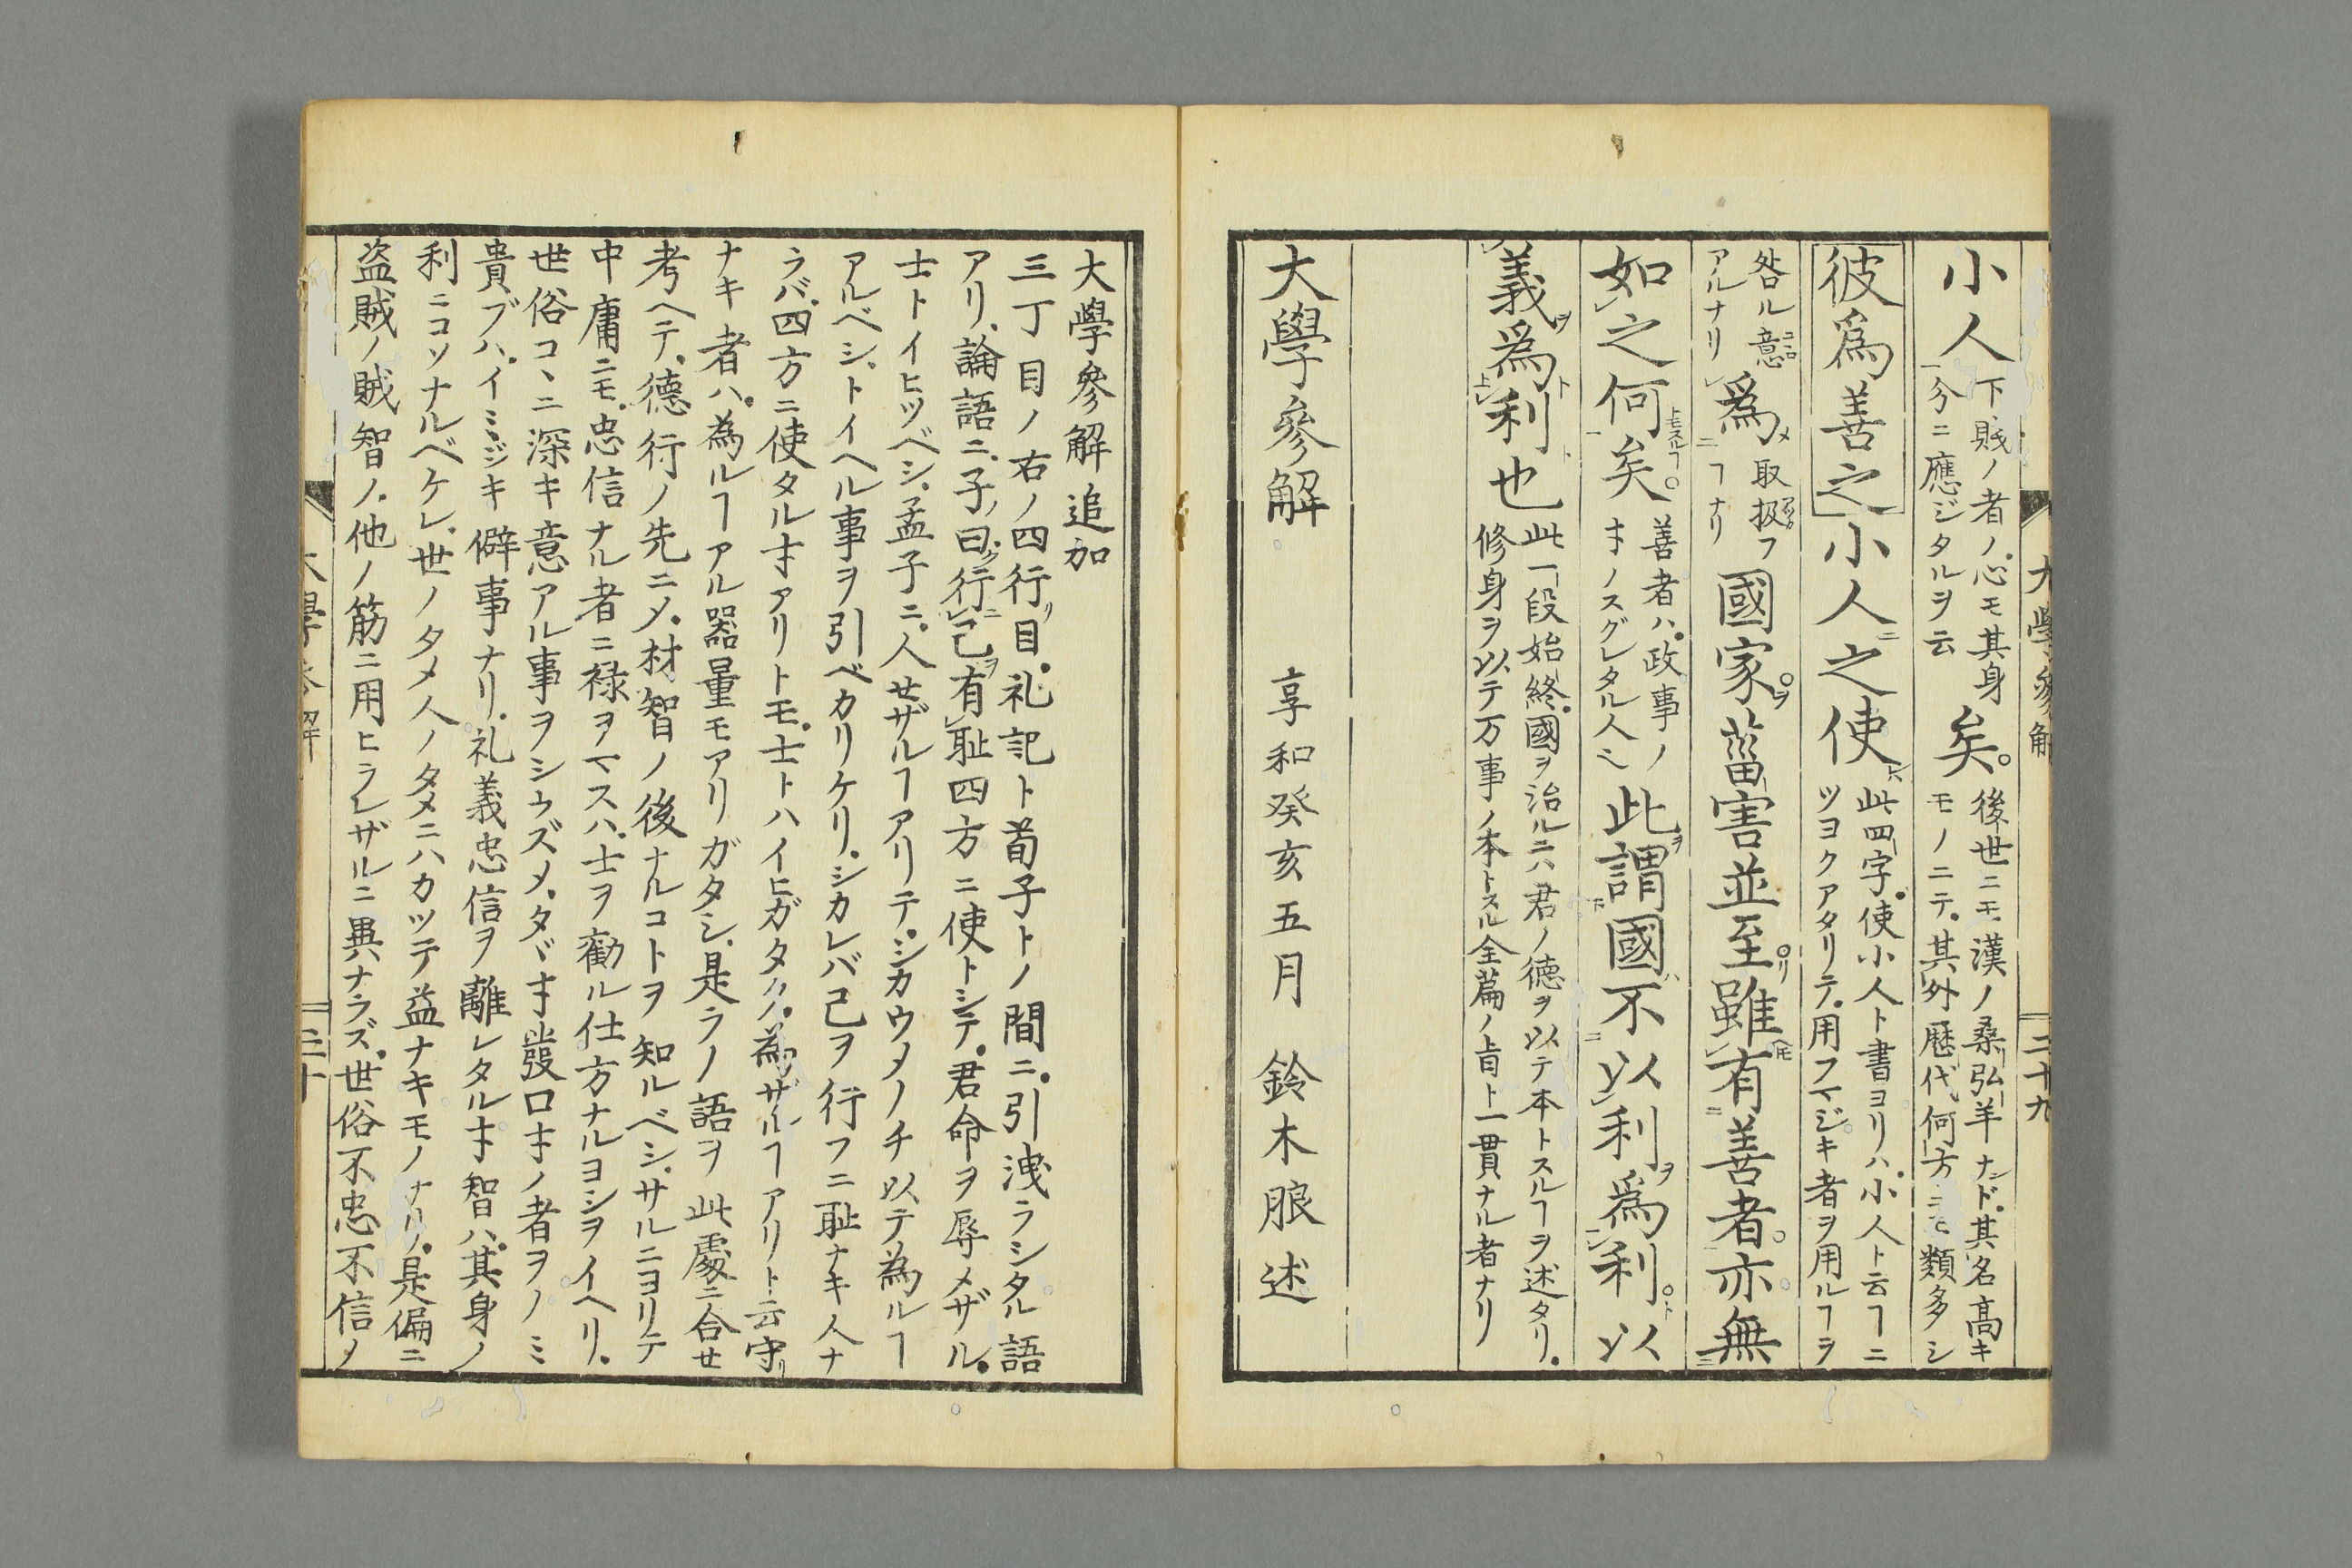 小人下賎ノ者ノ心モ其身
分ニ應ジタルヲ云
矣。後世ニモ漢ノ桑弘羊ナド其名高キ
モノニテ其外歷代何方ニモ類多シ
彼爲善之小人之使此四字使小人ト書ヨリハ小人ト云ヿニ
ツヨクアタリテ用フマジキ者ヲ用ルヿヲ
咎ル意
アルナリ
爲取扱フ
ヿナリ
國家菑害並至。雖有善者。亦無
如之何矣。善者ハ政事ノ
オノスグレタル人
此謂國不以利爲利。以
義爲利也此一段始終國ヲ治ルニハ君ノ德ヲ以テ本トスルヿヲ述タリ
修身ヲ以テ万事ノ本トスル全篇ノ旨ト一貫ナル者ナリ
大學參解 享和癸亥五月 鈴木朖述
大學參解 二十九
大學參解追加
三丁目ノ右ノ四行目。礼記ト荀子トノ間ニ引洩ラシタル語
アリ、論語ニ、子曰、行己有恥四方ニ使トシテ君命ヲ辱メザル。
士トイヒツベシ、孟子ニ、人セザルヿアリテ、シカウメノチ以テ為ルヿ
アルベシ、トイヘル事ヲ引ベカリケリ、シカレバ己ヲ行フニ恥ナキ人ナ
ラバ、四方ニ使タル才アリトモ、士トハイヒガタク、為ザルヿアリト云守リ
ナキ者ハ、為ルヿアル器量モアリガタシ、是ラノ語ヲ此處ニ合セ
考ヘテ、德行ノ先ニメ、材智ノ後ナルコトヲ知ルベシ、サルニヨリテ
中庸ニモ、忠信ナル者ニ禄ヲマスハ、士ヲ勸ル仕方ナルヨシヲイヘリ。
世俗コヽニ深キ意アル事ヲシラズメ、タヾ才發口才ノ者ヲノミ
貴ブハ、イミジキ僻事ナリ、礼義忠信ヲ離レタル才智ハ、其身ノ
利ニコソナルベケレ、世ノタメ人ノタメニハカツテ益ナキモノナリ。是偏ニ
盗賊ノ賊智ノ、他ノ筋ニ用ヒラレザルニ異ナラズ、世俗不忠不信ノ
大學參解 三十